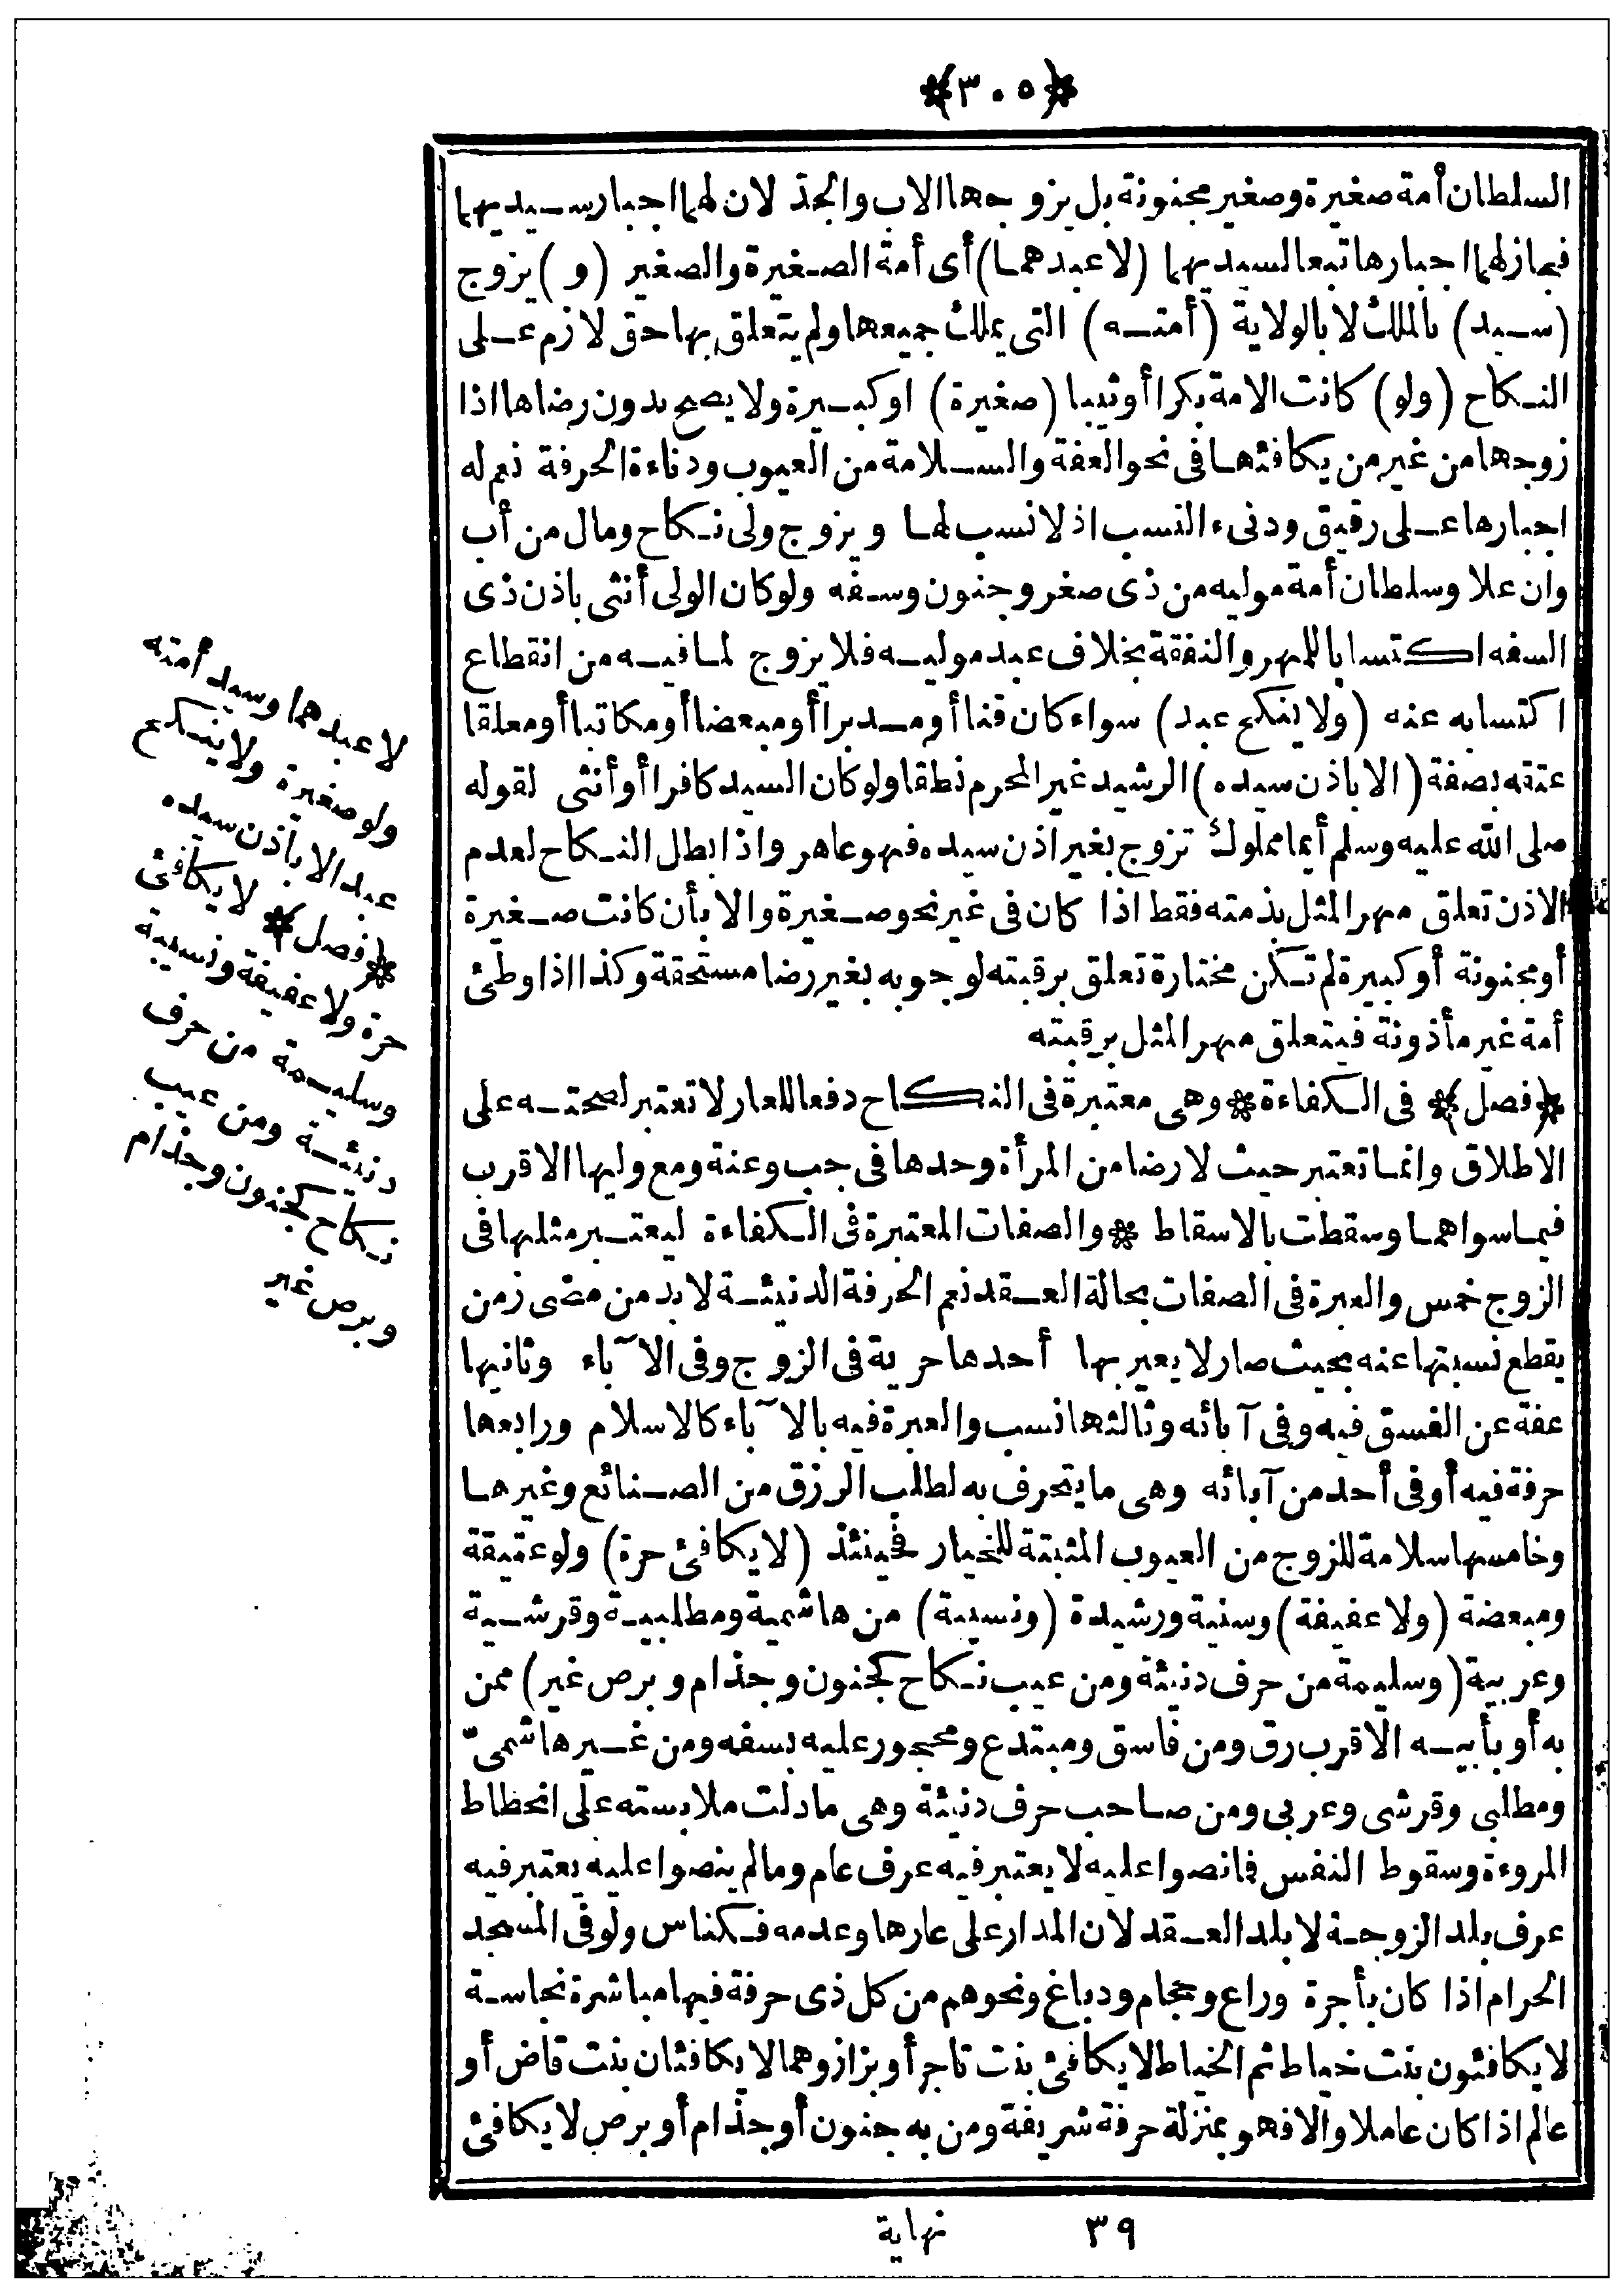 ﴿٣٠٥﴾
السلطان أمة صغيرة وصغير مجنونة بل يزوجها الاب والجد لان لهما اجبار سيديهما
فجاز لهما اجبارها تبعا لسيديهما (لا عبدهما) أى أمة الصغيرة والصغير (و) يزوج
(سيد) بالملك لا بالولاية (أمته) التى يملك جميعها ولم يتعلق بها حق لازم على
النكاح (ولو) كانت الامة بكرا أو ثيبا (صغيرة) او كبيرة ولا يصح بدون رضاها اذا
زوجها من غير من يكافئها فى نحو العفة والسلامة من العيوب ودناءة الحرفة نعم له
اجبارها على رقيق ودنىء النسب اذ لا نسب لها ويزوج ولى نكاح ومال من أب
وان علا وسلطان أمة موليه من ذى صغر وجنون وسفه ولو كان الولى أنثى باذن ذى
السفه اكتسابا للمهر والنفقة بخلاف عبد موليه فلا يزوج لما فيه من انقطاع
اكتسابه عنه (ولا ينكح عبد) سواء كان قنا أو مدبرا أو مبعضا أو مكاتبا أو معلقا
عتقه بصفة (الا باذن سيده) الرشيد غير المحرم نطقا ولو كان السيد كافرا أو أنثى لقوله
صلى الله عليه وسلم أيما مملوك تزوج بغير اذن سيده فهو عاهر واذا بطل النكاح لعدم
الاذن تعلق مهر المثل بذمته فقط اذا كان فى غير نحو صغيرة والا بأن كانت صغيرة
أو مجنونة أو كبيرة لم تكن مختارة تعلق برقبته لوجوبه بغير رضا مستحقة وكذا اذا وطئ
أمة غير مأذونة فيتعلق مهر المثل برقبته
﴿فصل﴾ فى الكفاءة * وهى معتبرة فى النكاح دفعا للعار لا تعتبر لصحته على
الاطلاق وانما تعتبر حيث لا رضا من المرأة وحدها فى جب وعنة ومع وليها الاقرب
فيما سواهما وسقطت بالاسقاط * والصفات المعتبرة فى الكفاءة ليعتبر مثلها فى
الزوج خمس والعبرة فى الصفات بحالة العقد نعم الحرفة الدنيئة لا بد من مضى زمن
يقطع نسبتها عنه بحيث صار لا يعير بها أحدها حرية فى الزوج وفى الآباء وثانيها
عفة عن الفسق فيه وفى آبائه وثالثها نسب والعبرة فيه بالآباء كالاسلام ورابعها
حرفة فيه أو فى أحد من آبائه وهى ما يتحرف به لطلب الرزق من الصنائع وغيرها
وخامسها سلامة للزوج من العيوب المثبتة للخيار فحينئذ (لا يكافئ حرة) ولو عتيقة
ومبعضة (ولا عفيفة) وسنية ورشيدة (ونسيبة) من هاشمية ومطلبية وقرشية
وعربية (وسليمة من حرف دنيئة ومن عيب نكاح كجنون وجذام وبرص غير) ممن
به أو بأبيه الاقرب رق ومن فاسق ومبتدع ومحجور عليه بسفه ومن غير هاشمىّ
ومطلبى وقرشى وعربى ومن صاحب حرف دنيئة وهى ما دلت ملابسته على انحطاط
المروءة وسقوط النفس فما نصوا عليه لا يعتبر فيه عرف عام وما لم ينصوا عليه يعتبر فيه
عرف بلد الزوجة لا بلد العقد لان المدار على عارها وعدمه فكناس ولو فى المسجد
الحرام اذا كان بأجرة وراع وحجام ودباغ ونحوهم من كل ذى حرفة فيها مباشرة نجاسة
لا يكافئون بنت خياط ثم الخياط لا يكافئ بنت تاجر أو بزاز وهما لا يكافئان بنت قاض أو
عالم اذا كان عاملا والا فهو بمنزلة حرفة شريفة ومن به جنون أو جذام أو برص لا يكافئ
لا عبدهما وسيد أمته
ولو صغيرة ولا ينكح
عبد الا باذن سيده
﴿فصل﴾ لا يكافئ
حرة ولا عفيفة ونسيبة
وسليمة من حرف
دنيئة ومن عيب
نكاح كجنون وجذام
وبرص غير
٣٩ نهاية